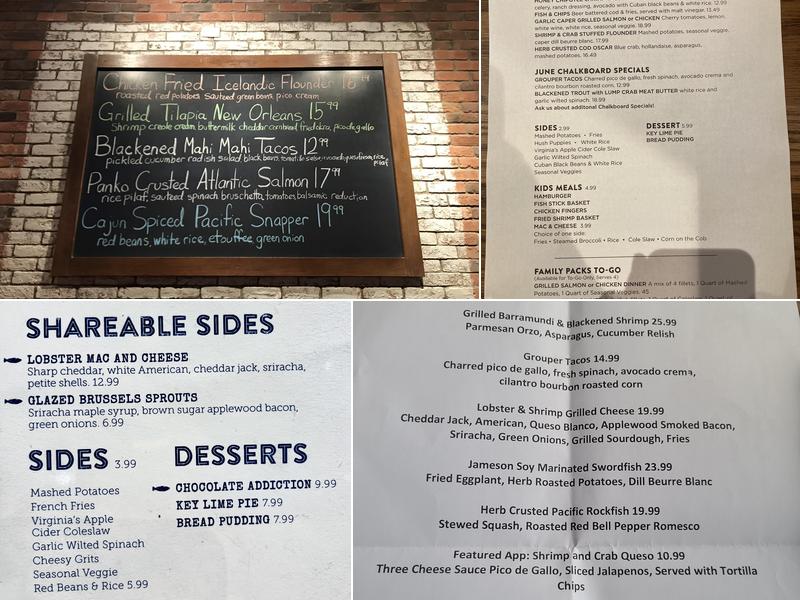 Chicken Fried Icelandic Flounder 16
roasted red potatoes sauteed green beans pico cream
Grilled Tilapia New Orleans 15 99
Shrimp creole cream buttermilk cheddar cornbread fried okra, pico de gallo
Blackened Mahi Mahi Tacos 12 99
pickled cucumber radish salad black beans, tomatillo salsa, rice
pilaf
Panko Crusted Atlantic Salmon 17 99
rice pilaf, sauteed spinach bruschetta, tomatoes balsamic reduction
Cajun Spiced Pacific Snapper 19 99
red beans, white rice, etouffee green onion
celery, ranch dressing, avocado with Cuban black beans & white rice. 12.99
FISH & CHIPS Beer battered cod & fries, served with malt vinegar. 13.49
GARLIC CAPER GRILLED SALMON or CHICKEN Cherry tomatoes, lemon,
white wine, white rice, seasonal veggie. 18.99
SHRIMP & CRAB STUFFED FLOUNDER Mashed potatoes, seasonal veggie,
caper dill beurre blanc. 17.99
HERB CRUSTED COD OSCAR Blue crab, hollandaise, asparagus,
mashed potatoes. 16.49
JUNE CHALKBOARD SPECIALS
GROUPER TACOS Charred pico de gallo, fresh spinach, avocado crema and
cilantro bourbon roasted corn. 12.99
BLACKENED TROUT with LUMP CRAB MEAT BUTTER white rice and
garlic wilted spinach. 18.99
Ask us about additonal Chalkboard Specials!
SIDES 2.99
Mashed Potatoes • Fries
Hush Puppies • White Rice
Virginia's Apple Cider Cole Slaw
Garlic Wilted Spinach
Cuban Black Beans & White Rice
Seasonal Veggies
DESSERT 5.99
KEY LIME PIE
BREAD PUDDING
KIDS MEALS 4.99
HAMBURGER
FISH STICK BASKET
CHICKEN FINGERS
FRIED SHRIMP BASKET
MAC & CHEESE 3.99
Choice of one side:
Fries • Steamed Broccoli • Rice • Cole Slaw • Corn on the Cob
FAMILY PACKS TO-GO
(Available for To-Go Only, Serves 4)
GRILLED SALMON or CHICKEN DINNER A mix of 4 fillets, 1 Quart of Mashed
Potatoes, 1 Quart of Seasonal Veggies. 45
SHAREABLE SIDES
LOBSTER MAC AND CHEESE
Sharp cheddar, white American, cheddar jack, sriracha,
petite shells. 12.99
GLAZED BRUSSELS SPROUTS
Sriracha maple syrup, brown sugar applewood bacon,
green onions. 6.99
SIDES 3.99
Mashed Potatoes
French Fries
Virginia's Apple
Cider Coleslaw
Garlic Wilted Spinach
Cheesy Grits
Seasonal Veggie
Red Beans & Rice 5.99
DESSERTS
CHOCOLATE ADDICTION 9.99
KEY LIME PIE 7.99
BREAD PUDDING 7.99
Grilled Barramundi & Blackened Shrimp 25.99
Parmesan Orzo, Asparagus, Cucumber Relish
Grouper Tacos 14.99
Charred pico de gallo, fresh spinach, avocado crema,
cilantro bourbon roasted corn
Lobster & Shrimp Grilled Cheese 19.99
Cheddar Jack, American, Queso Blanco, Applewood Smoked Bacon,
Sriracha, Green Onions, Grilled Sourdough, Fries
Jameson Soy Marinated Swordfish 23.99
Fried Eggplant, Herb Roasted Potatoes, Dill Beurre Blanc
Herb Crusted Pacific Rockfish 19.99
Stewed Squash, Roasted Red Bell Pepper Romesco
Featured App: Shrimp and Crab Queso 10.99
Three Cheese Sauce Pico de Gallo, Sliced Jalapenos, Served with Tortilla
Chips